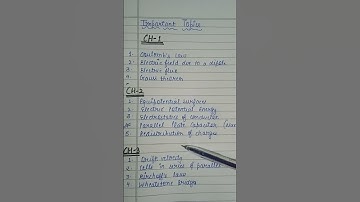 Important Topics
CH-1
1. Coulomb's Law
2. Electric field due to a dipole
3. Electric flux
4. Gauss theorem
CH-2
1. Equipotential surfaces
2. Electric Potential Energy
3. Electrostatics of conductor
4. Parallel Plate Capacitor
5. Redistribution of charges
CH-3
1. Drift velocity
2. Cells in series & parallel
3. Kirchoff's Law
4 Wheatstone bridge